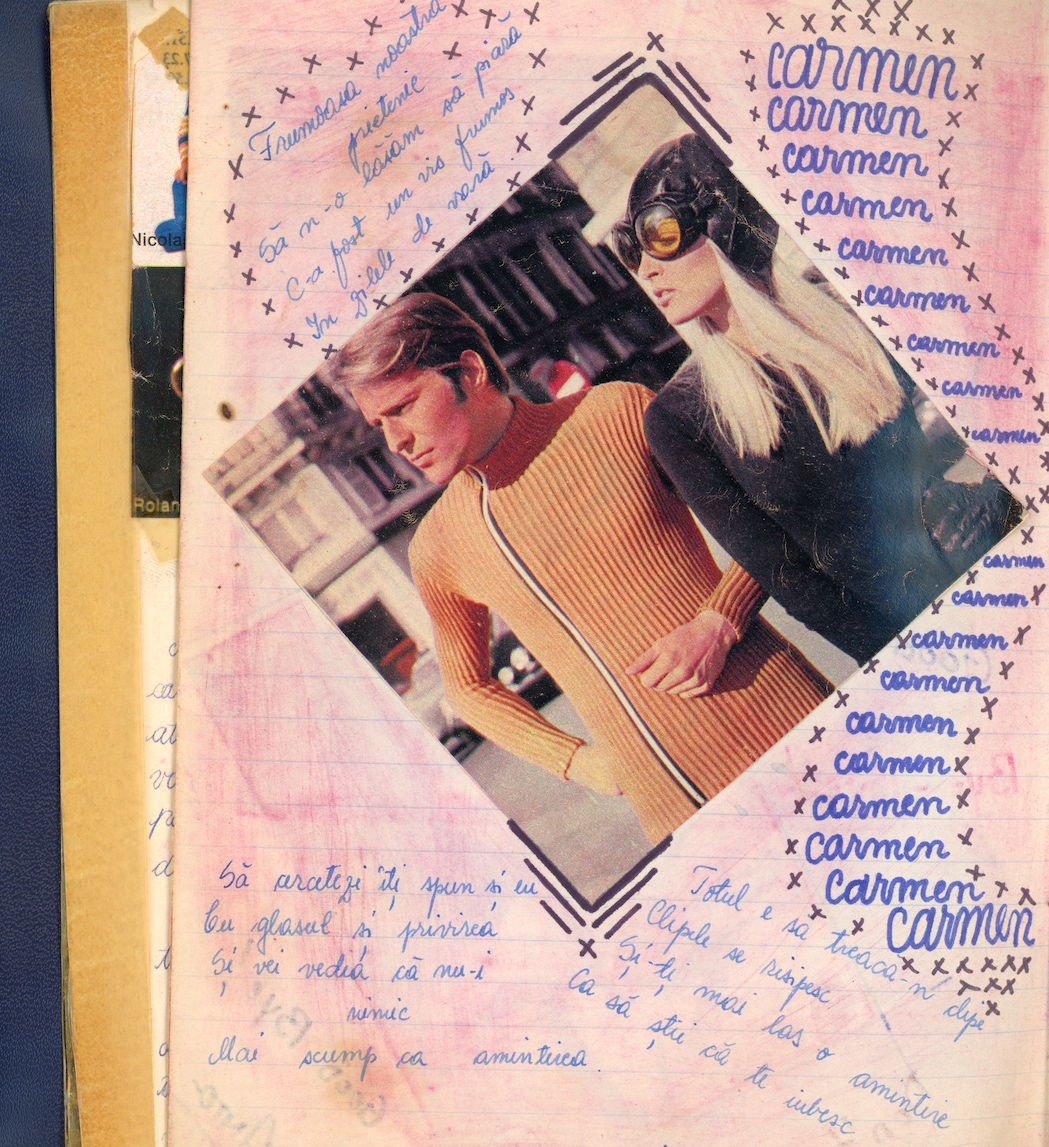 Frumoasa noastra
prietenie
Să n-o lăsăm să piară
C-a fost un vis frumos
În zilele de vară.
carmen
carmen
carmen
carmen
carmen
carmen
carmen
carmen
carmen
carmen
carmen
carmen
carmen
carmen
carmen
carmen
carmen
carmen
carmen
Nicola
Rolan
Să aratezi îți spun și eu
Cu glasul si privirea
Și vei vediă că nu-i
nimic
Mai scump ca amintirea.
Totul e să treacă-n clipe
Clipele se risipesc
Și-ți mai las o amintire
Ca să știi că te iubesc